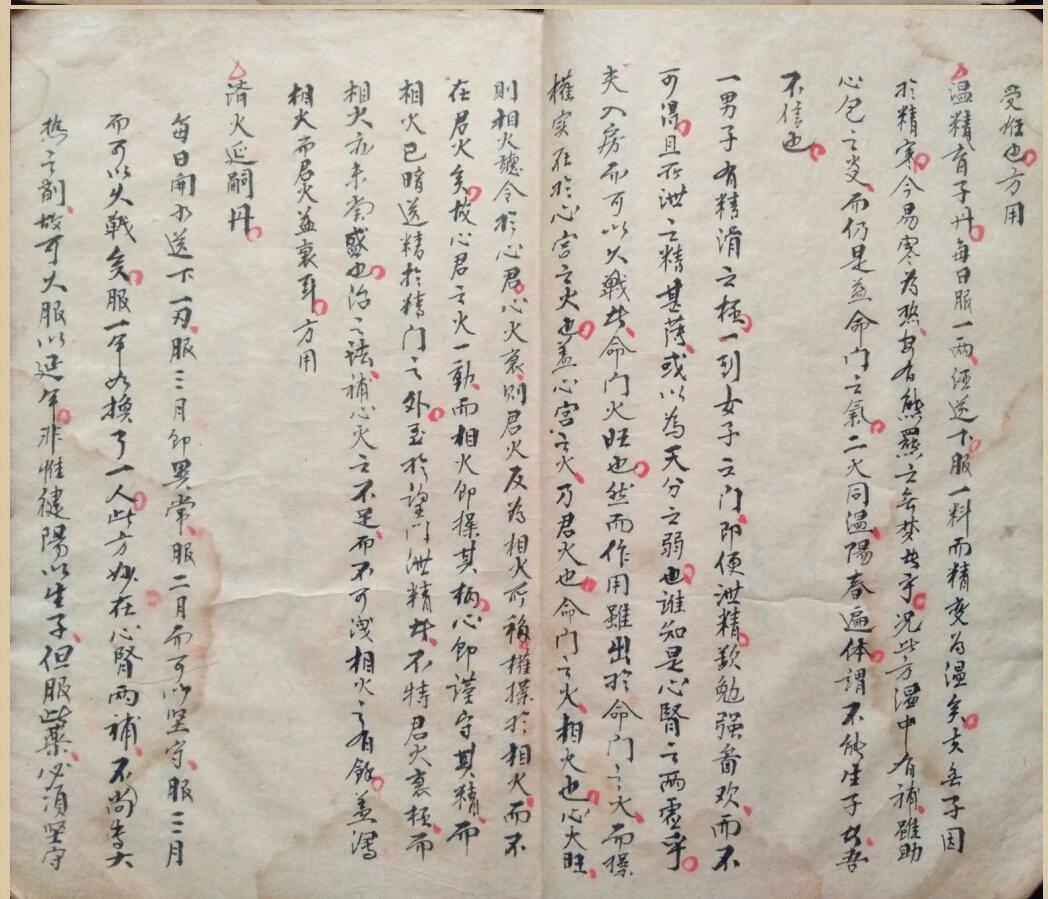 受妊也方用
温精育子丹每日服一两酒送下服一料而精变为温矣夫無子因
於精寒今易寒為热安有熊羆之無梦者乎况此方温中有補雖助
心包之炎而仍是益命门之氣二火同温陽春遍体謂不能生子者吾
不信也
一男子有精滑之極一到女子之门即便泄精欲勉强啚欢而不
可得且所泄之精甚薄或以為天分之弱也谁知是心腎之两虚乎
夫入房而可以久戰者命门火旺也然而作用雖出於命门之火而操
權实在於心宫之火也盖心宫之火乃君火也命门之火相火也心火旺
則相火聽令於心君心火衰則君火反為相火所移權操於相火而不
在君火矣故心君之火一動而相火即操其柄心即谨守其精而
相火已暗送精於精门之外至於望门泄精者不特君火衰極而
相火亦未嘗盛也治之法補心火之不足而不可洩相火之有餘盖瀉
相火而君火益衰耳方用
済火延嗣丹
每日開水送下一刃服三月即異常服二月而可以坚守服三月
而可以久戰矣服一年如換了一人此方妙在心腎两補不尚专大
热之剤故可久服以延年非惟健陽以生子但服此藥必須坚守